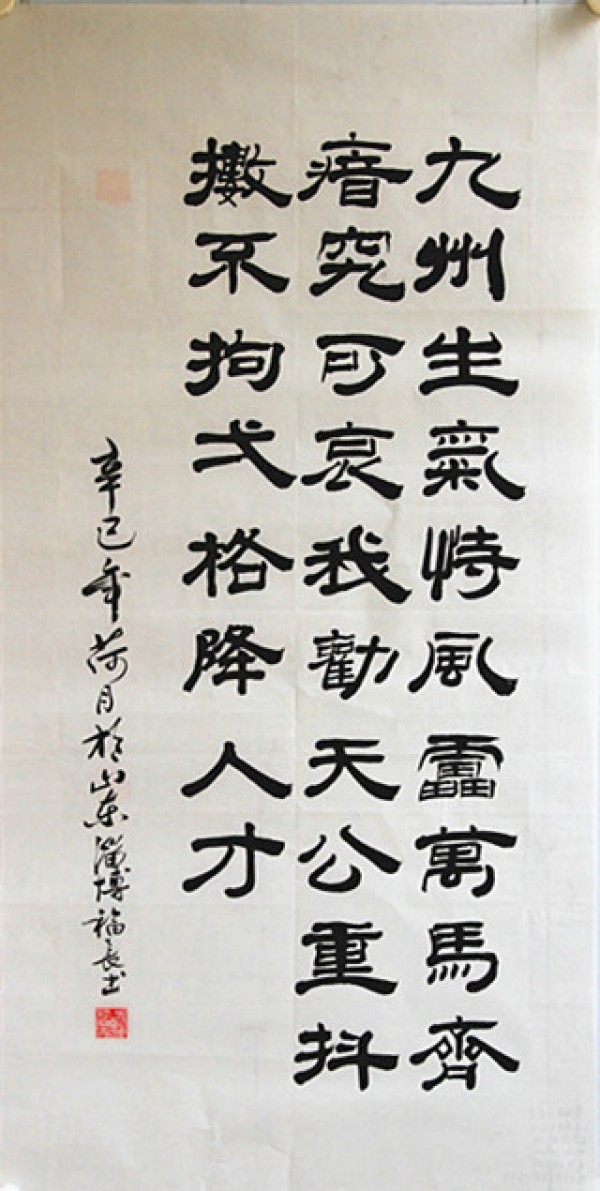 九州生氣恃風靁萬馬齊
瘖究可哀我勸天公重抖
擻不拘弌格降人才
辛巳年荷月於山東淄博福長書